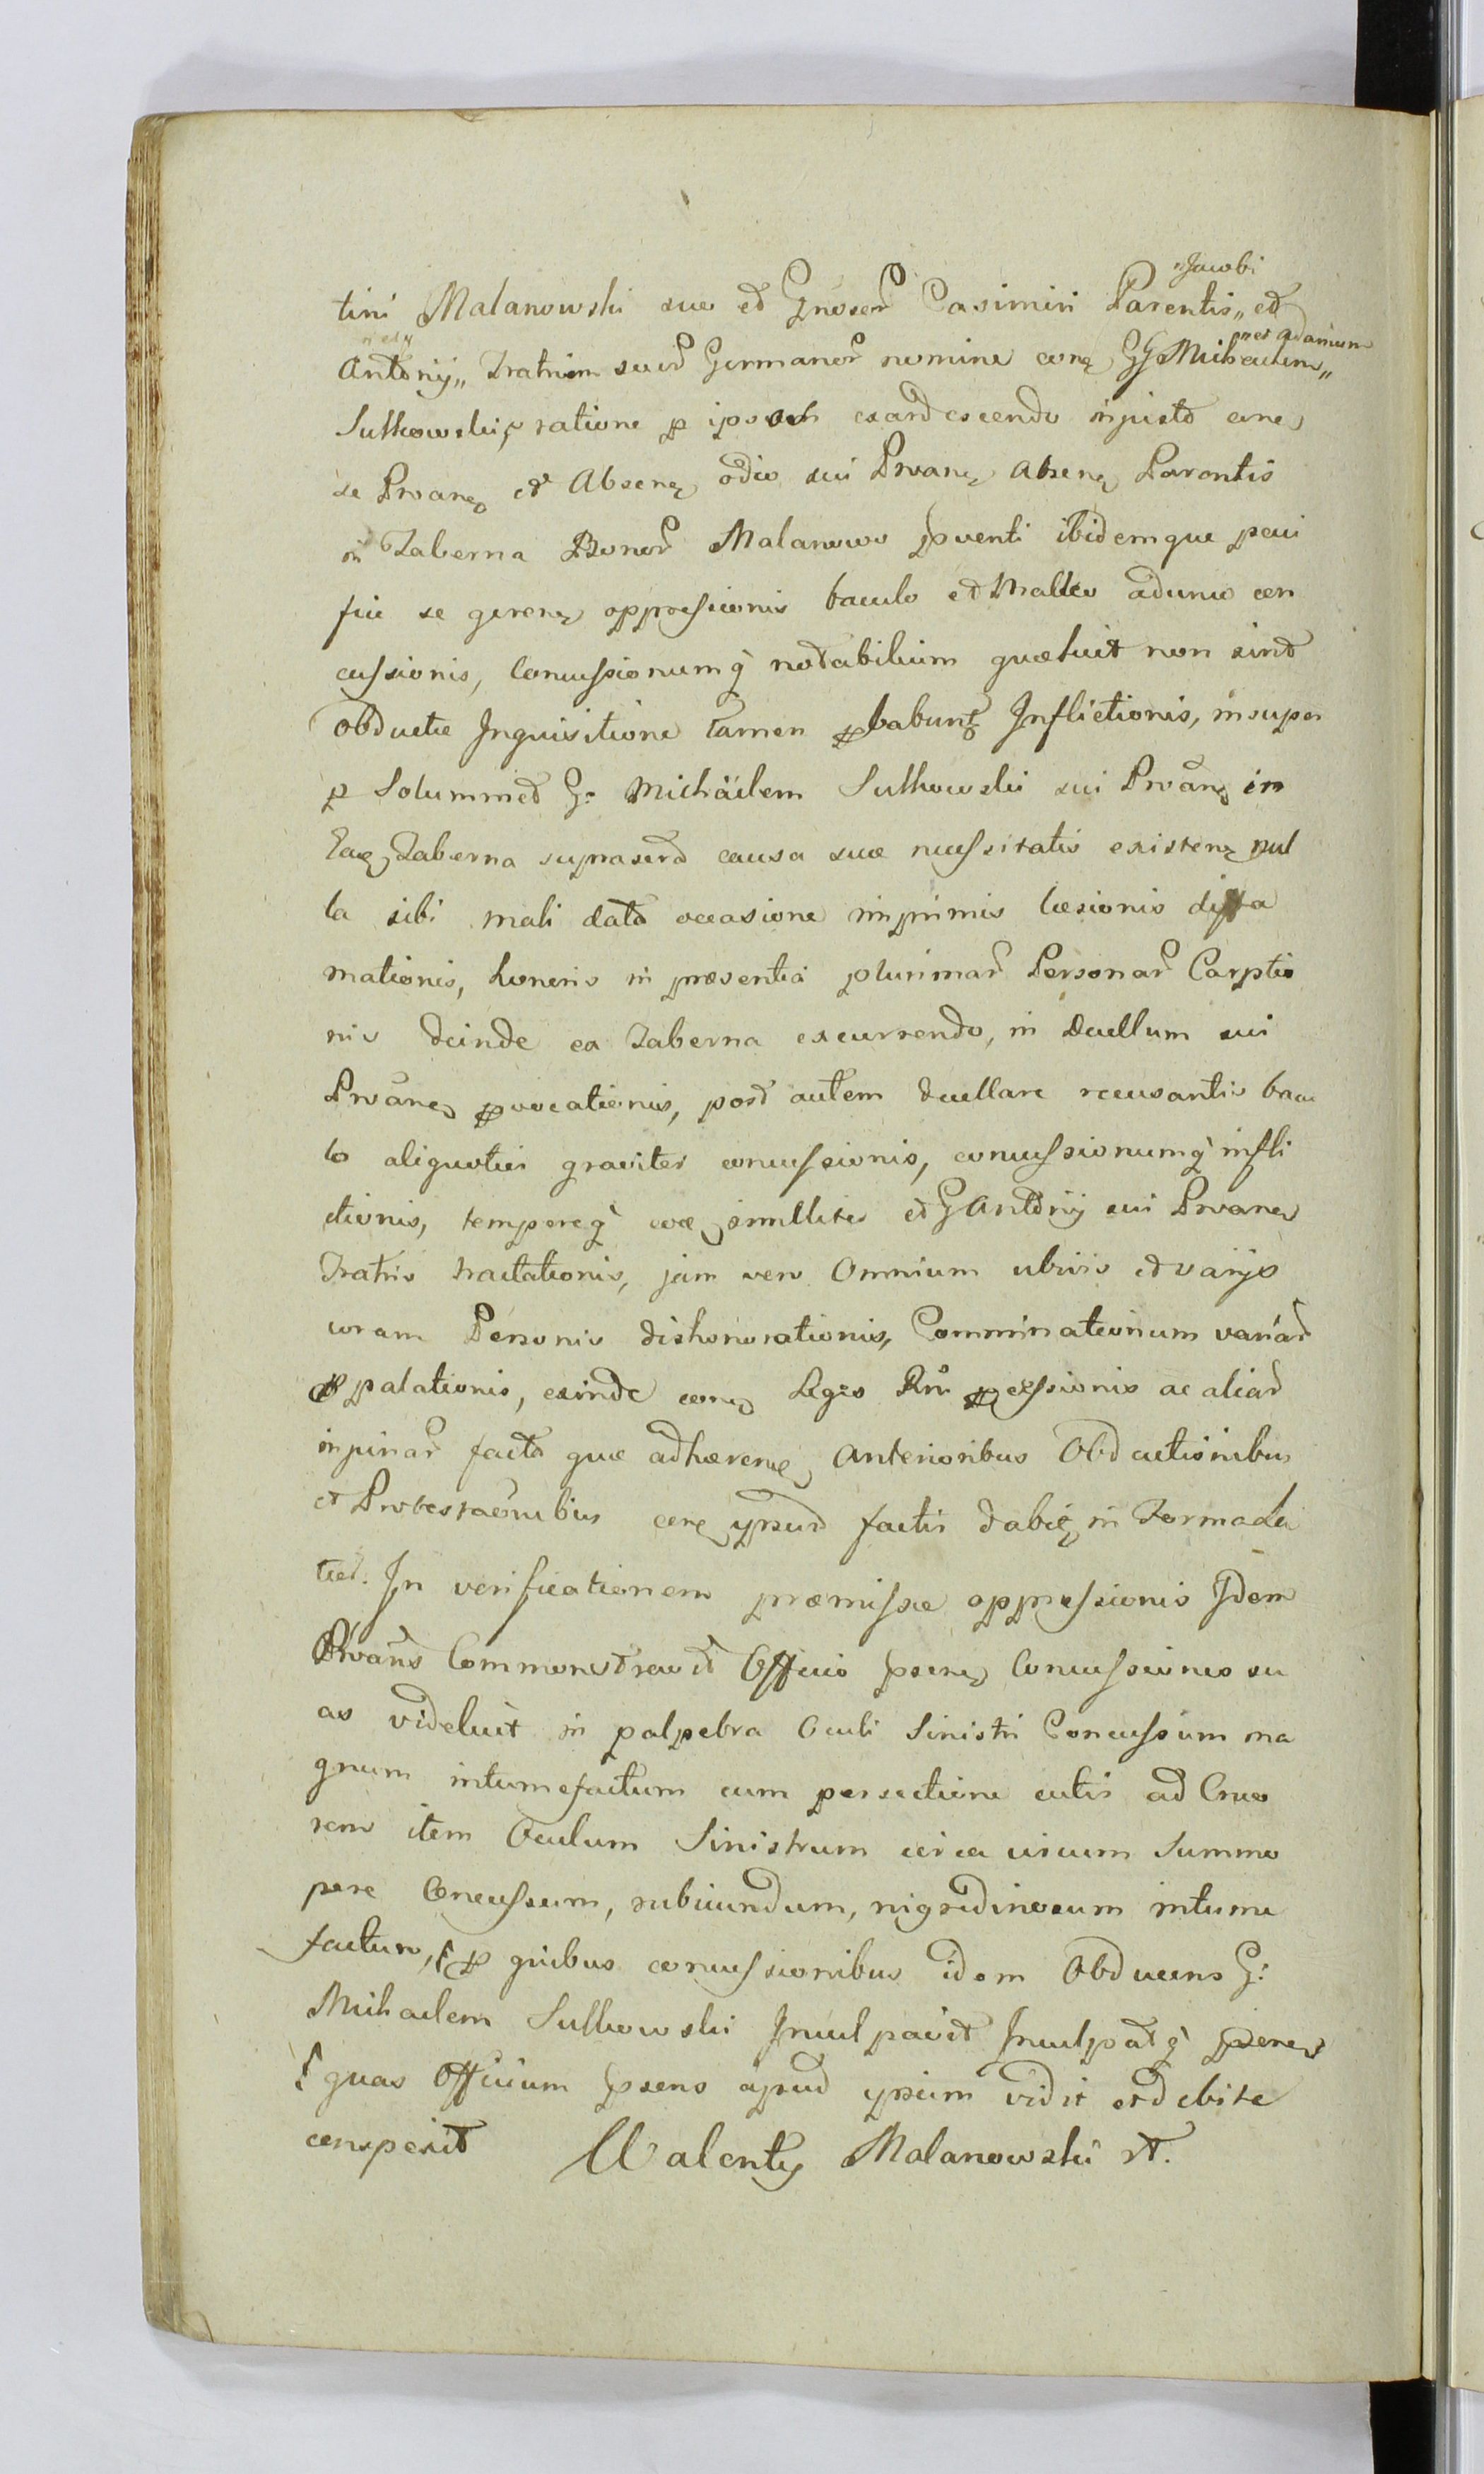 "Jacobi
tini Malanowski suo et Gnoser Casimiri Parentis,, et
"et Adamum
Antonij,, Fratrum suor Germanor nomine conq GG Michaelem,,
Sulkowski, ratione p ipsos exardescendo injusto conq
se Prvanq et Absenq odio sui Prvanq Absenq Parentis
in Taberna Bonor Malanowo pventi ibidemque paci
fice se gerenq oppressionis baculo et multo aduno con
cussionis, Concussionumq notabilium quæ luit non sint
obductæ Inquisitione tamen pbabunt Inflictionis, insuper
p Solummodo G: Michäelem Sulkowski sui Prvanq in
Eaq Taberna supraser causa suæ necessitatis existenq nul
la sibi mali data occasione imprimis læsionis diffa
mationis, honoris in præsentia plurimar Personar Carptio
nis deinde ex Taberna excurrendo, in Duellum sui
Prvanq pvocationis, post autem duellare recusantis bacu
lo aliquoties graviter concussionis, concussionumq infli
ctionis, temporeq eoq similliter et G Antonij sui Prvanq
Fratris tractationis, jam vero Omnium ubivis et varijs
coram Personis dishonorationis, Comminationum variar
ppalationis, exinde conq Leges Rni pcessionis ac aliar
injuriar facto quæ adhærenq Anterioribus Obductionibus
et Protestaonibus conq ypsud factis dabit in Forma de
ted. In verificationem præmissæ oppressionis Idem
Prvans Commonstravit Officio psenq Concussiones su
as videlicit in palpebra Oculi Sinistri Concussum ma
gnum intumefactum cum persectione cutis ad Cruo
rem item Oculum Sinistrum circa circum Summo
pere Concussum, rubicundum, nigredinosum intume
factum, p quibus concussionibus idem Obducens G:
Michaelem Sulkowski Inculpavit Inculpatq psenq
quas Officium psens apud ypsum vidit et debite
conspexit Walenty Malanowski